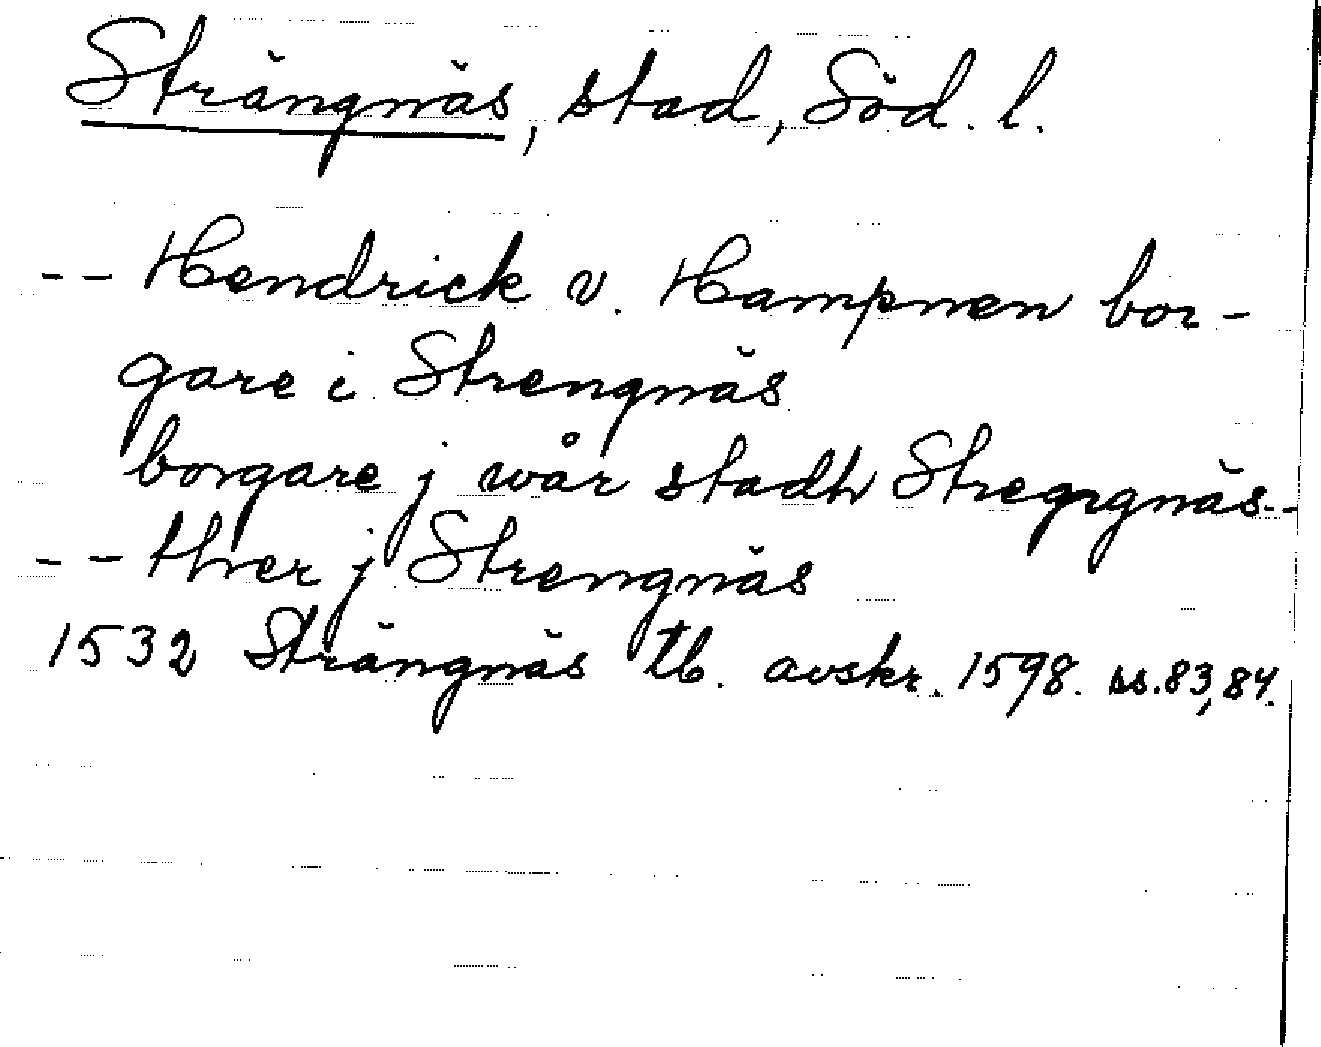 Strängnäs, stad, Söd. l.
-- Hendrick v. Hampnen bor-
gare i Strengnäs
borgare j wår stadh Stregngnäs--
-- thver j Strengnäs
1532 Strängnäs tb. avskr. 1598. ss. 83, 84.